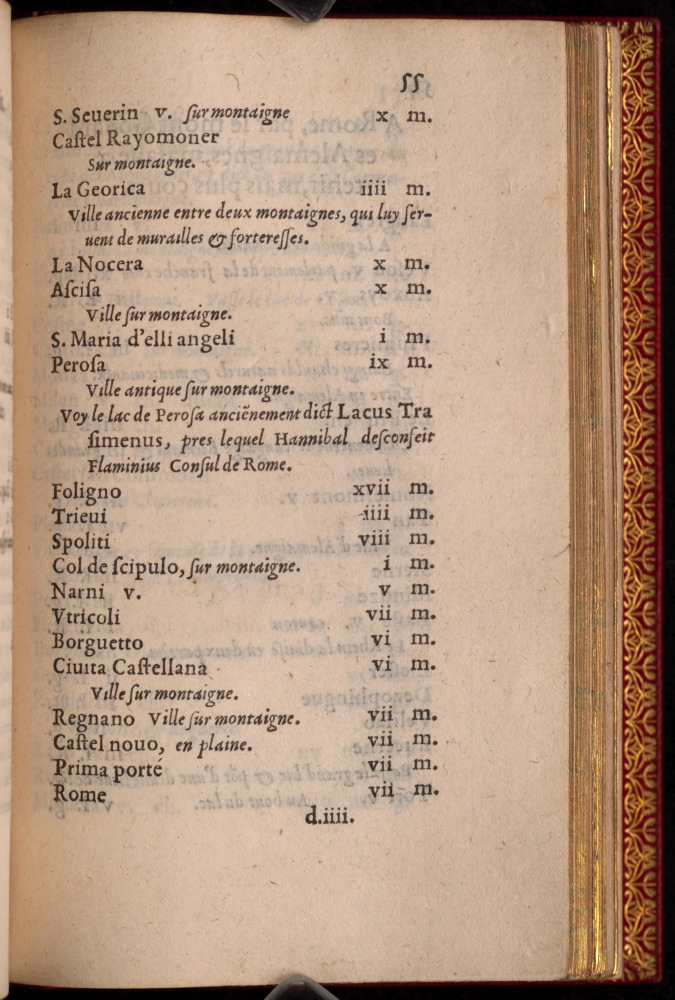 55
S. Seuerin v. ſur montaigne x m.
Caſtel Rayomoner
Sur montaigne.
La Georica iiii m.
Ville ancienne entre deux montaignes, qui luy ſer-
uent de murailles & fortereſſes.
La Nocera x m.
Aſciſa x m.
Ville ſur montaigne.
S. Maria d'elli angeli i m.
Peroſa ix m.
Ville antique ſur montaigne.
Voy le lac de Peroſa anciẽnement dict Lacus Tra
ſimenus, pres lequel Hannibal deſconfeit
Flaminius Conſul de Rome.
Foligno xvii m.
Trieui iiii m.
Spoliti viii m.
Col de ſcipulo, ſur montaigne. i m.
Narni v. v m.
Vtricoli vii m.
Borguetto vi m.
Ciuita Caſtellana vi m.
Ville ſur montaigne.
Regnano Ville ſur montaigne. vii m.
Caſtel nouo, en plaine. vii m.
Prima porté vii m.
Rome vii m.
d.iiii.